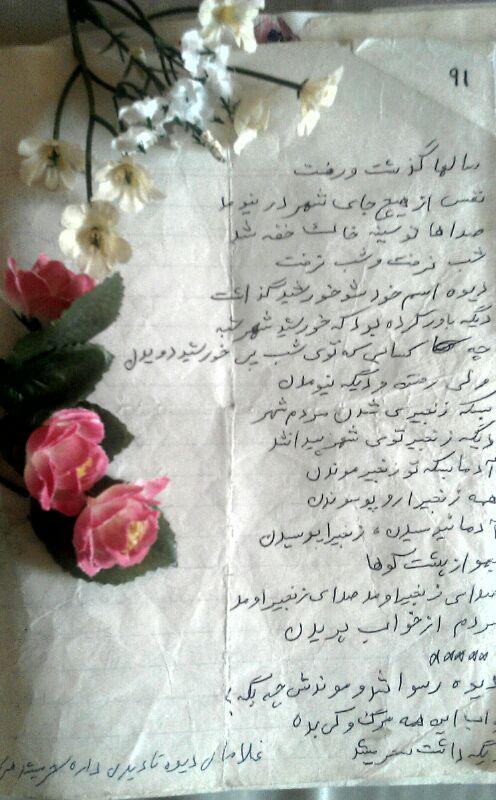 91
سالها گذشت و رفت
نفس از هیچ جای شهر در نیومد
صداها تو سینه خاک خفه شد
شب نرفت و شب نرفت
دیوه اسم خودشو خورشید گذاشت
دیگه باور کرده بود که خورشید شهر شبه
چه کسانی که توی شب پی خورشید دویدن
ولی رفتن و دیگه نیومدن
بسکه زنجیری شدن مردم شهر
دیگه زنجیر توی شهر پیدا نشد
آدما بسکه تو زنجیر موندن
همه زنجیرا رو پوسوندن
آدما نپوسیدن، زنجیرا پوسیدن
یهو از پشت کوها
صدای زنجیر اومد صدای زنجیر اومد
مردم از خواب پریدن
دیوه رسوا شد و موندش چه بگه؟
جواب این همه مرگ و کی بده
دیگه داشت سحر میشد
غلامای دیوه تا دیدن داره سحر میشه